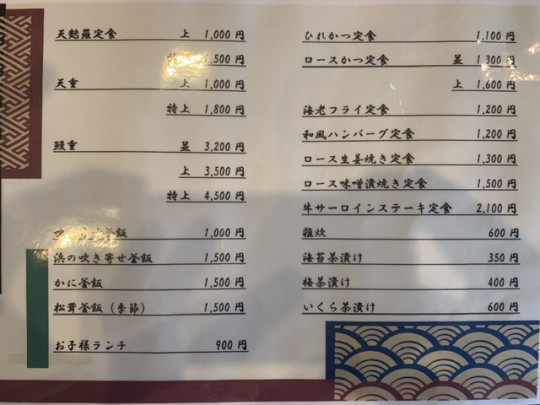 天麩羅定食 上 1,000 円
500 円
天重 上 1,000 円
特上 1,800 円
鰻重 並 3,200 円
上 3,500 円
特上 4,500 円
釜飯 1,000 円
浜の吹き寄せ釜飯 1,500 円
かに釜飯 1,500 円
松茸釜飯（季節） 1,500 円
お子様ランチ 900 円
ひれかつ定食 1,100 円
ロースかつ定食 並 1,300 円
上 1,600 円
海老フライ定食 1,200 円
和風ハンバーグ定食 1,200 円
ロース生姜焼き定食 1,300 円
ロース味噌漬焼き定食 1,500 円
牛サーロインステーキ定食 2,100 円
雑炊 600 円
海苔茶漬け 350 円
梅茶漬け 400 円
いくら茶漬け 600 円